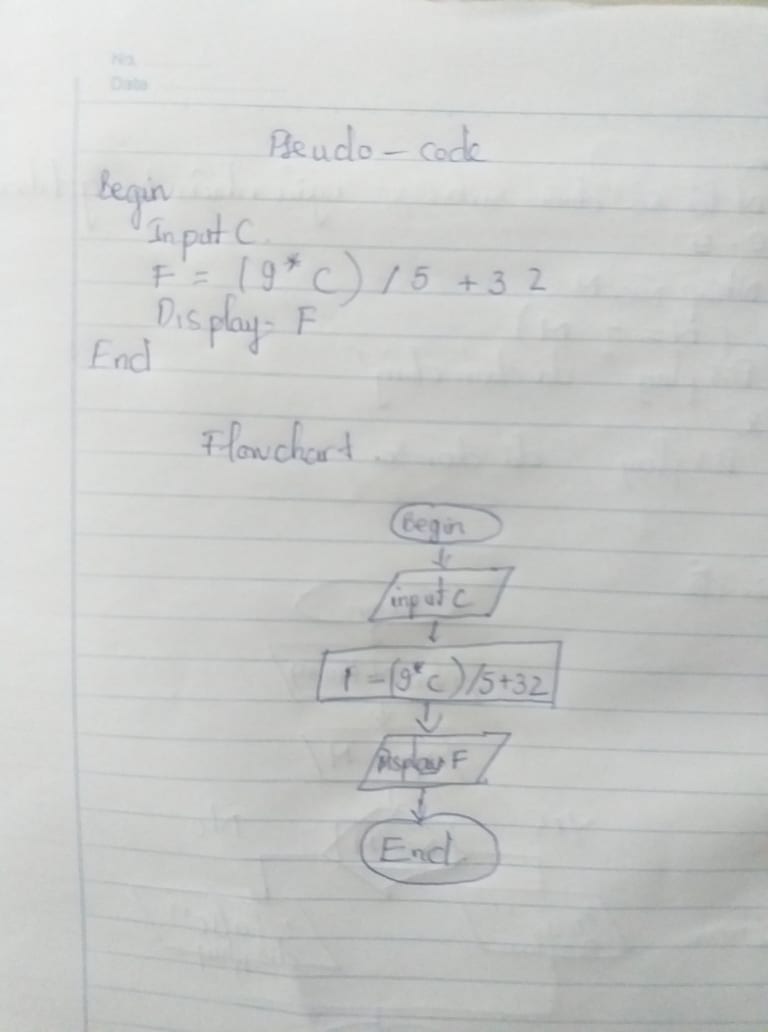 No.
Date
Pseudo - code
Begin
Input C
F = (9 * C) / 5 + 32
Display F
End
Flowchart
Begin
input C
F = (9 * C) / 5 + 32
Display F
End